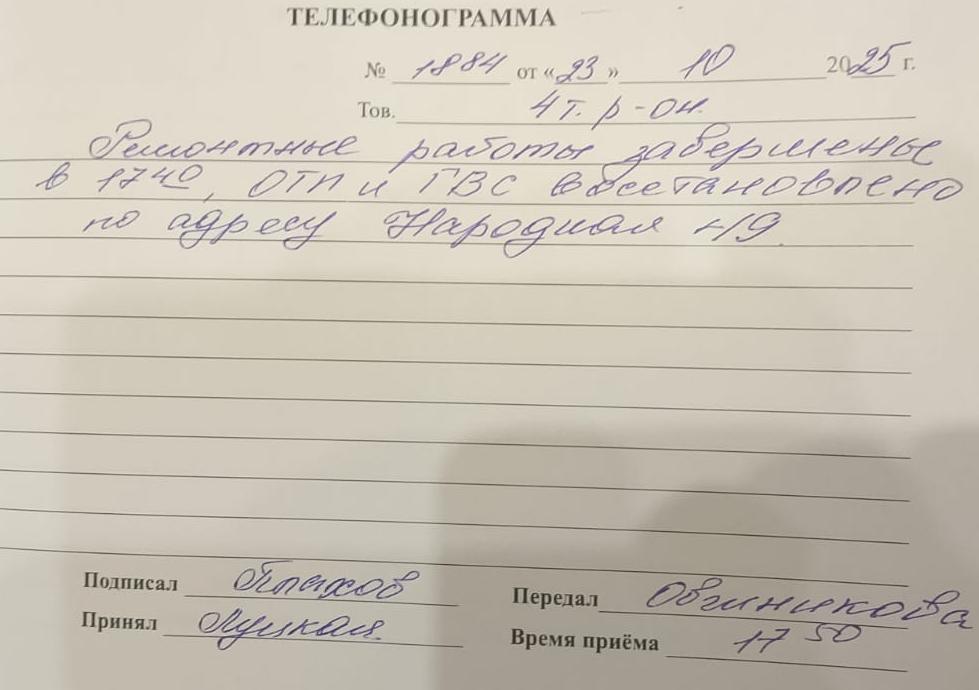 ТЕЛЕФОНОГРАММА
№ 1884 от «23» 10 2025 г.
Тов. 4 т. р-он.
Ремонтные работы завершены
в 17 40, ОТП и ГВС восстановлено
по адресу Народная
Подписал Передал
Принял Луцкая. Время приёма 17 50